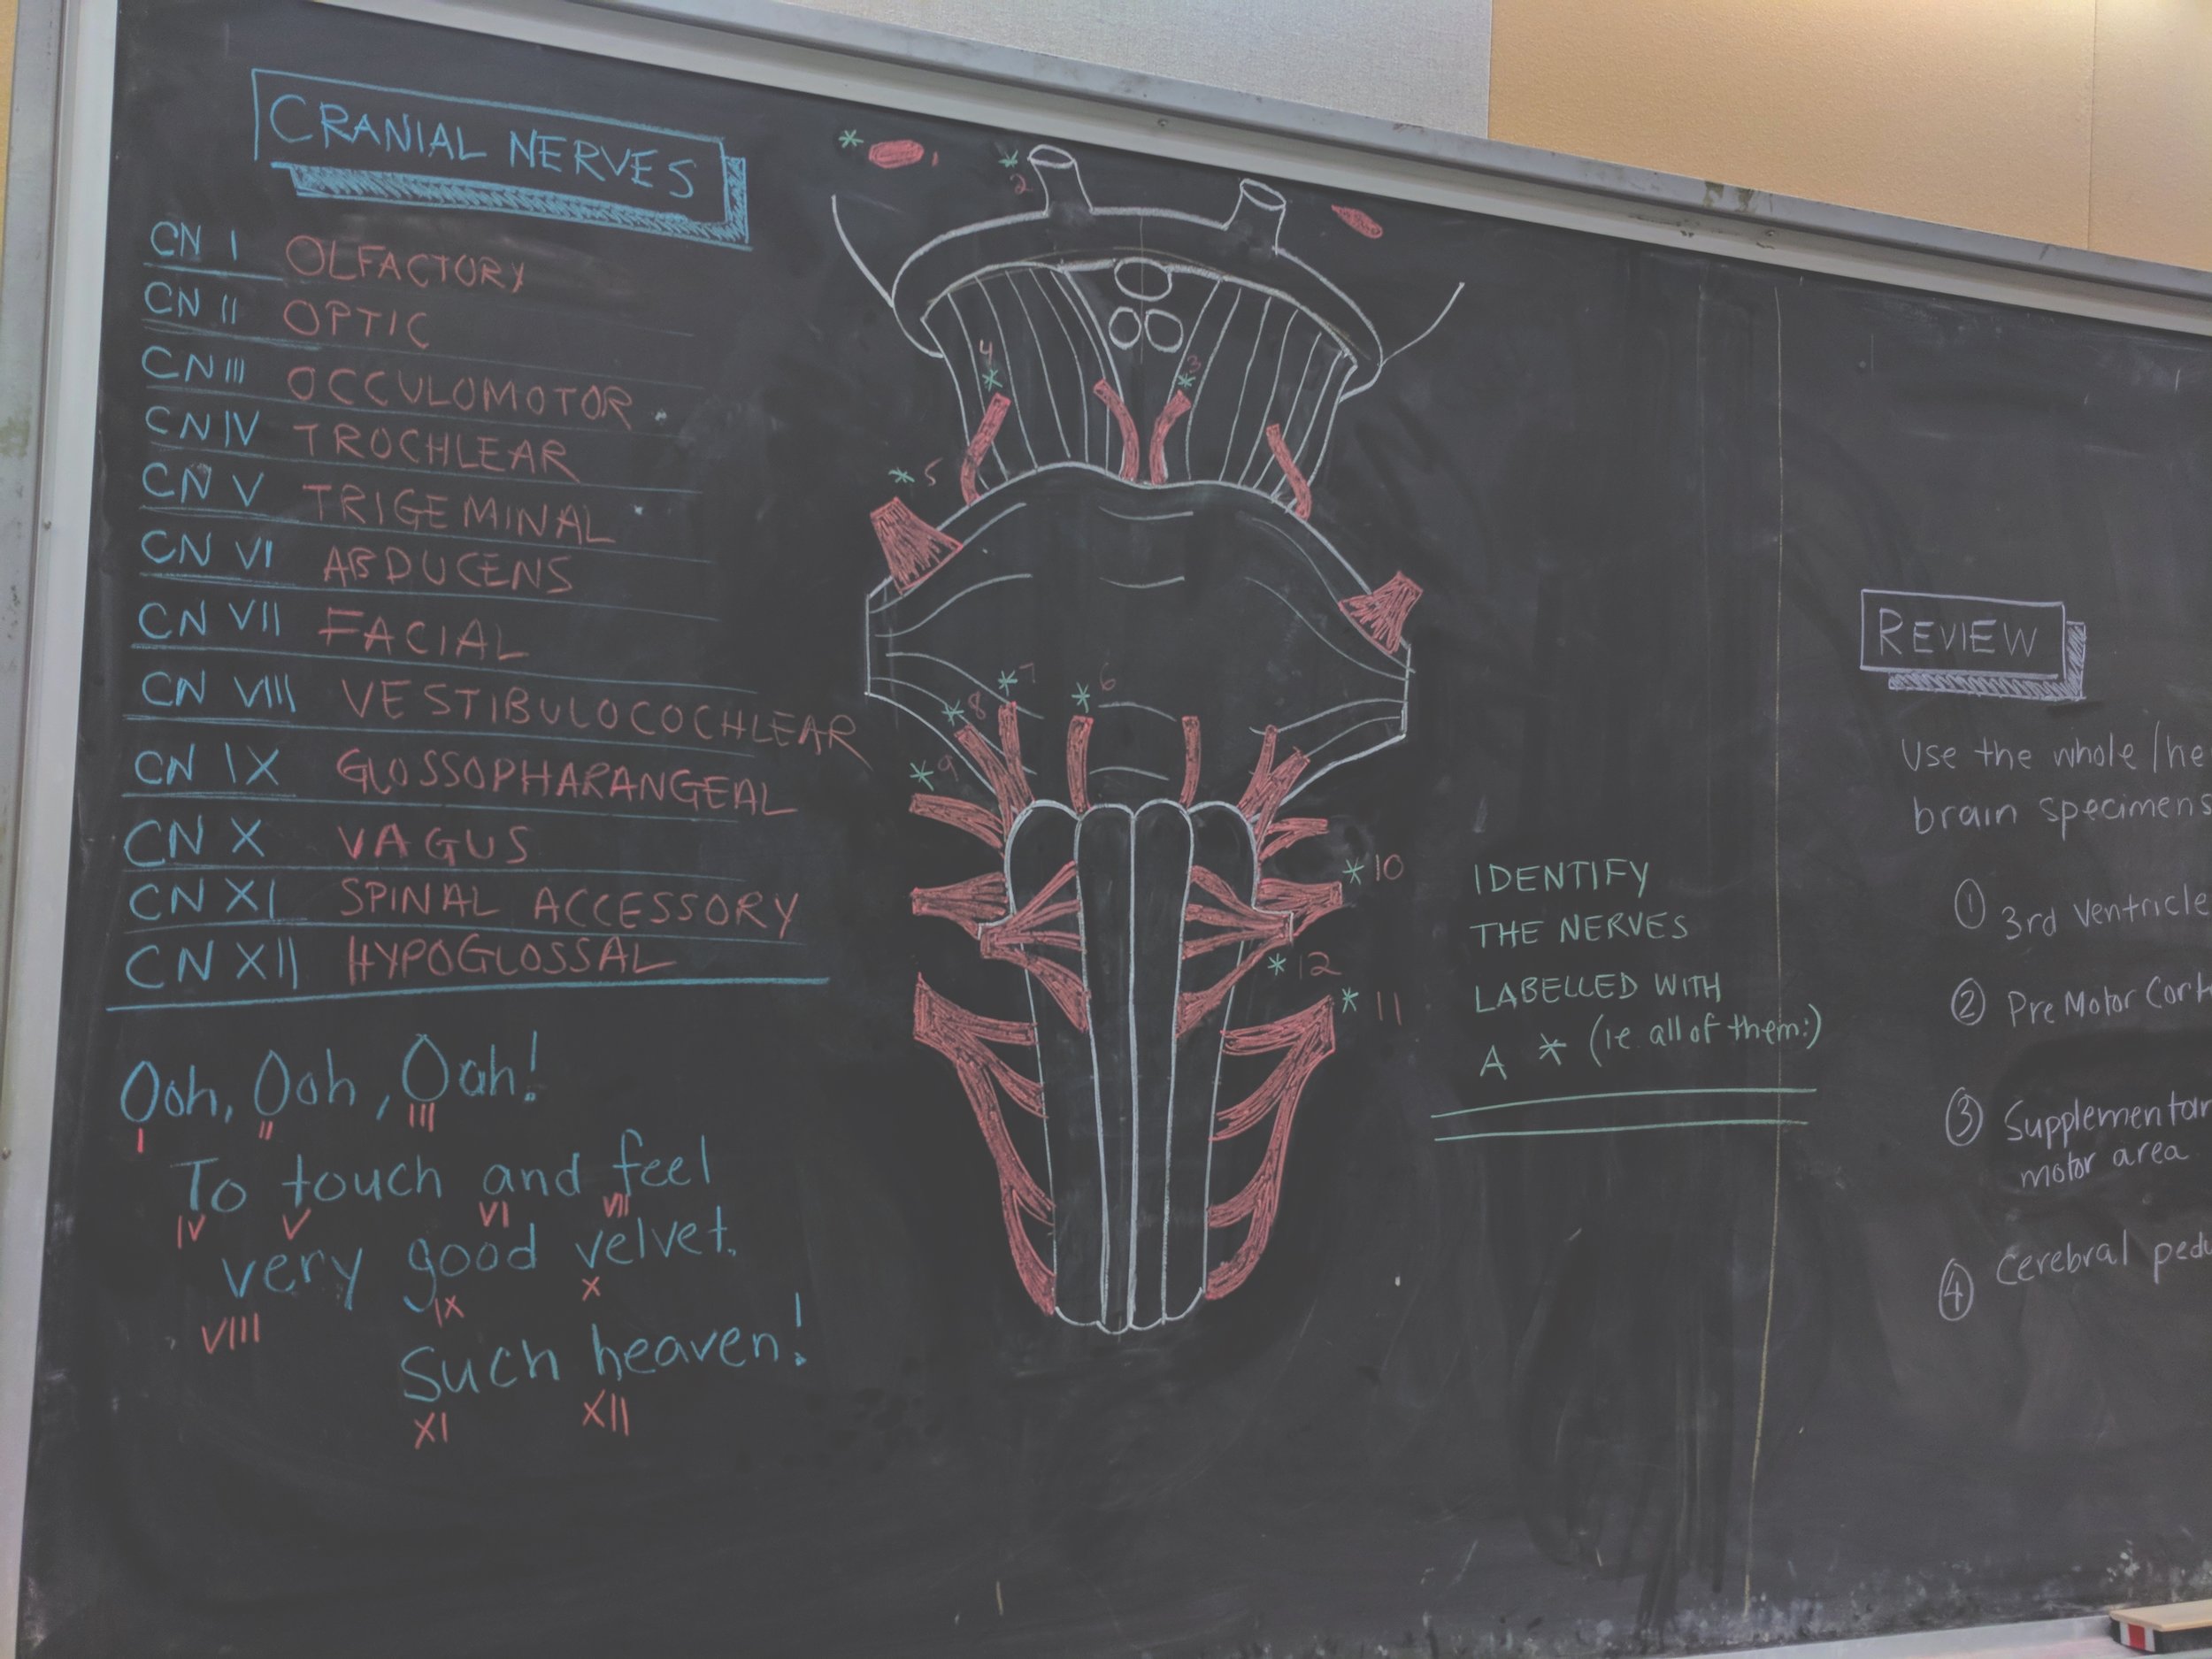 CRANIAL NERVES
CN I OLFACTORY
CN II OPTIC
CN III OCCULOMOTOR
CN IV TROCHLEAR
CN V TRIGEMINAL
CN VI ABDUCENS
CN VII FACIAL
CN VIII VESTIBULOCOCHLEAR
CN IX GLOSSOPHARANGEAL
CN X VAGUS
CN XI SPINAL ACCESSORY
CN XII HYPOGLOSSAL
Ooh, Ooh, Ooh!
I II III
To touch and feel
IV V VI VII
very good velvet.
VIII IX X
Such heaven!
XI XII
* 1
* 2
* 3
* 4
* 5
* 6
* 7
* 8
* 9
* 10
* 12
* 11
IDENTIFY
THE NERVES
LABELLED WITH
A * (ie all of them:)
REVIEW
Use the whole/he
brain specimens
① 3rd Ventricle
② PreMotor Cort
③ Supplementar
motor area
④ Cerebral pedu